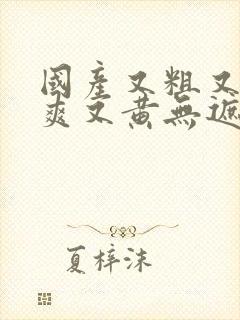 國產又粗又
爽又黃無遮
夏梓沫